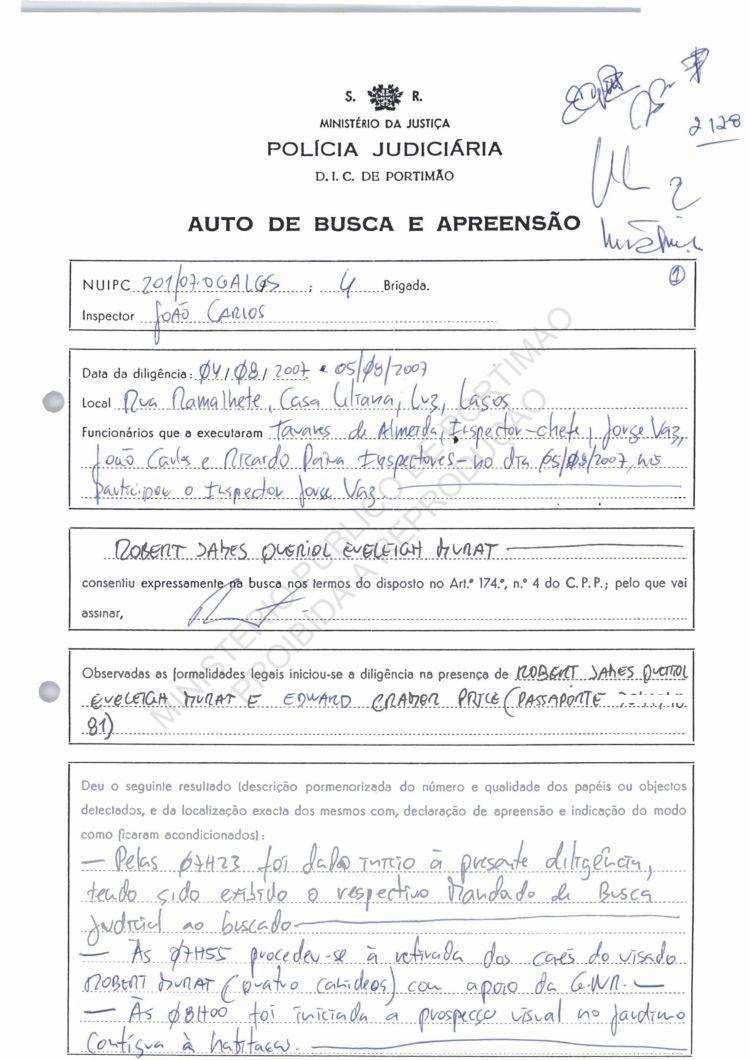 S. R.
MINISTÉRIO DA JUSTIÇA
POLÍCIA JUDICIÁRIA
D. I. C. DE PORTIMÃO
2128
AUTO DE BUSCA E APREENSÃO
1
NUIPC 201/07.0GALGS ; 4 Brigada.
Inspector JOÃO CARLOS
Data da diligência: 04/08/2007 e 05/08/2007
Local Rua Ramalhete, Casa Liliana, Luz, Lagos
Funcionários que a executaram Tavares de Almeida, Inspector-chefe, Jorge Vaz,
João Carlos e Ricardo Paiva Inspectores - no dia 05/08/2007, não
participou o Inspector Jorge Vaz.
ROBERT JAMES QUERIOL EVELEIGH MURAT
consentiu expressamente na busca nos termos do disposto no Art.º 174.º, n.º 4 do C. P. P.; pelo que vai
assinar,
Observadas as formalidades legais iniciou-se a diligência na presença de ROBERT JAMES QUERIOL
EVELEIGH MURAT E EDWARD PRICE (PASSAPORTE
81)
Deu o seguinte resultado (descrição pormenorizada do número e qualidade dos papéis ou objectos
detectados, e da localização exacta dos mesmos com, declaração de apreensão e indicação do modo
como ficaram acondicionados):
— Pelas 07H23 foi dado início à presente diligência,
tendo sido exibido o respectivo Mandado de Busca
Judicial ao buscado
— Às 07H55 procedeu-se à retirada dos canés do visado
ROBERT MURAT (quatro canídeos) com apoio da G.N.R. —
— Às 08H00 foi iniciada a prospecço visual no jardimo
contígua à habitaçao.
MINISTÉRIO PÚBLICO DE PORTIMÃO
PROIBIDA A REPRODUÇÃO